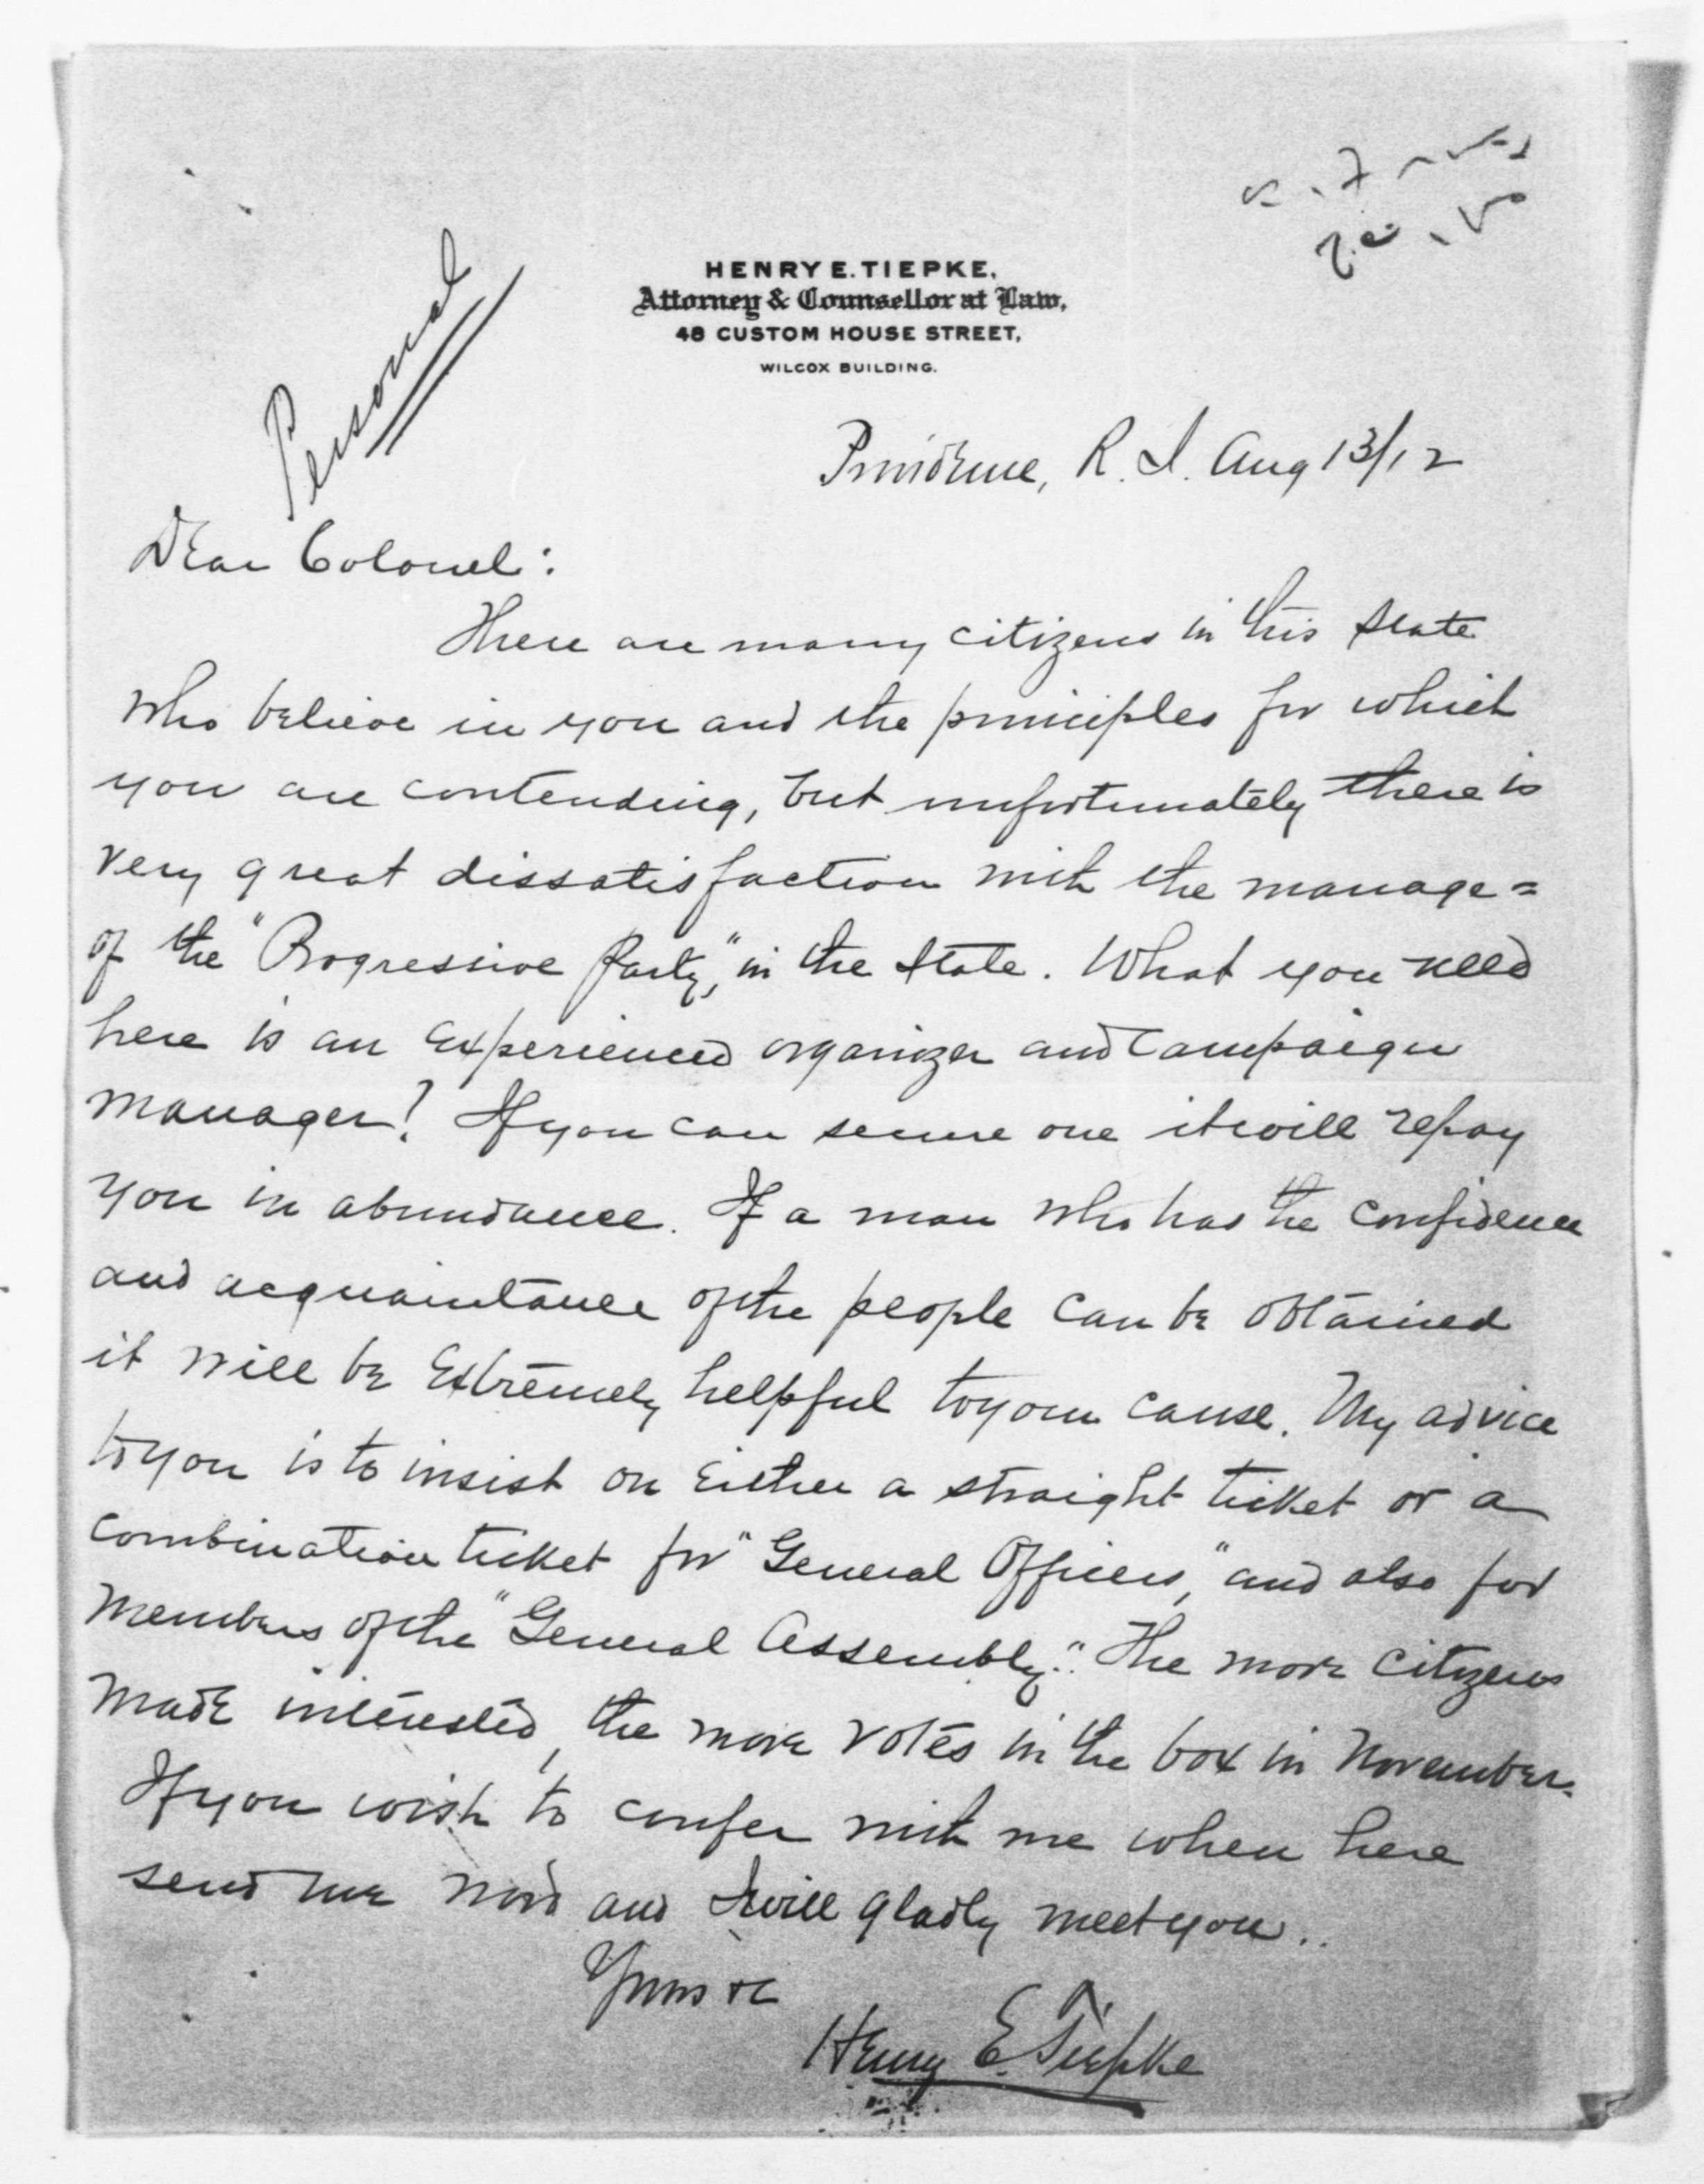 Personal
HENRY E. TIEPKE,
Attorney & Counsellor at Law,
48 CUSTOM HOUSE STREET,
WILCOX BUILDING.
Providence, R. I. Aug 13/12
Dear Colonel:
There are many citizens in this state
who believe in you and the principles for which
you are contending, but unfortunately there is
very great dissatisfaction with the manage=
of the "Progressive Party," in the state. What you need
here is an experienced organizer and campaign
manager! If you can secure one it will repay
you in abundance. If a man who has the confidence
and acquaintance of the people can be obtained
it will be extremely helpful to your cause. My advice
to you is to insist on either a straight ticket or a
combination ticket for "General Officers," and also for
members of the "General Assembly." The more citizens
made interested, the more votes in the box in November.
If you wish to confer with me when here
send me word and I will gladly meet you..
Yours &c
Henry E. Tiepke